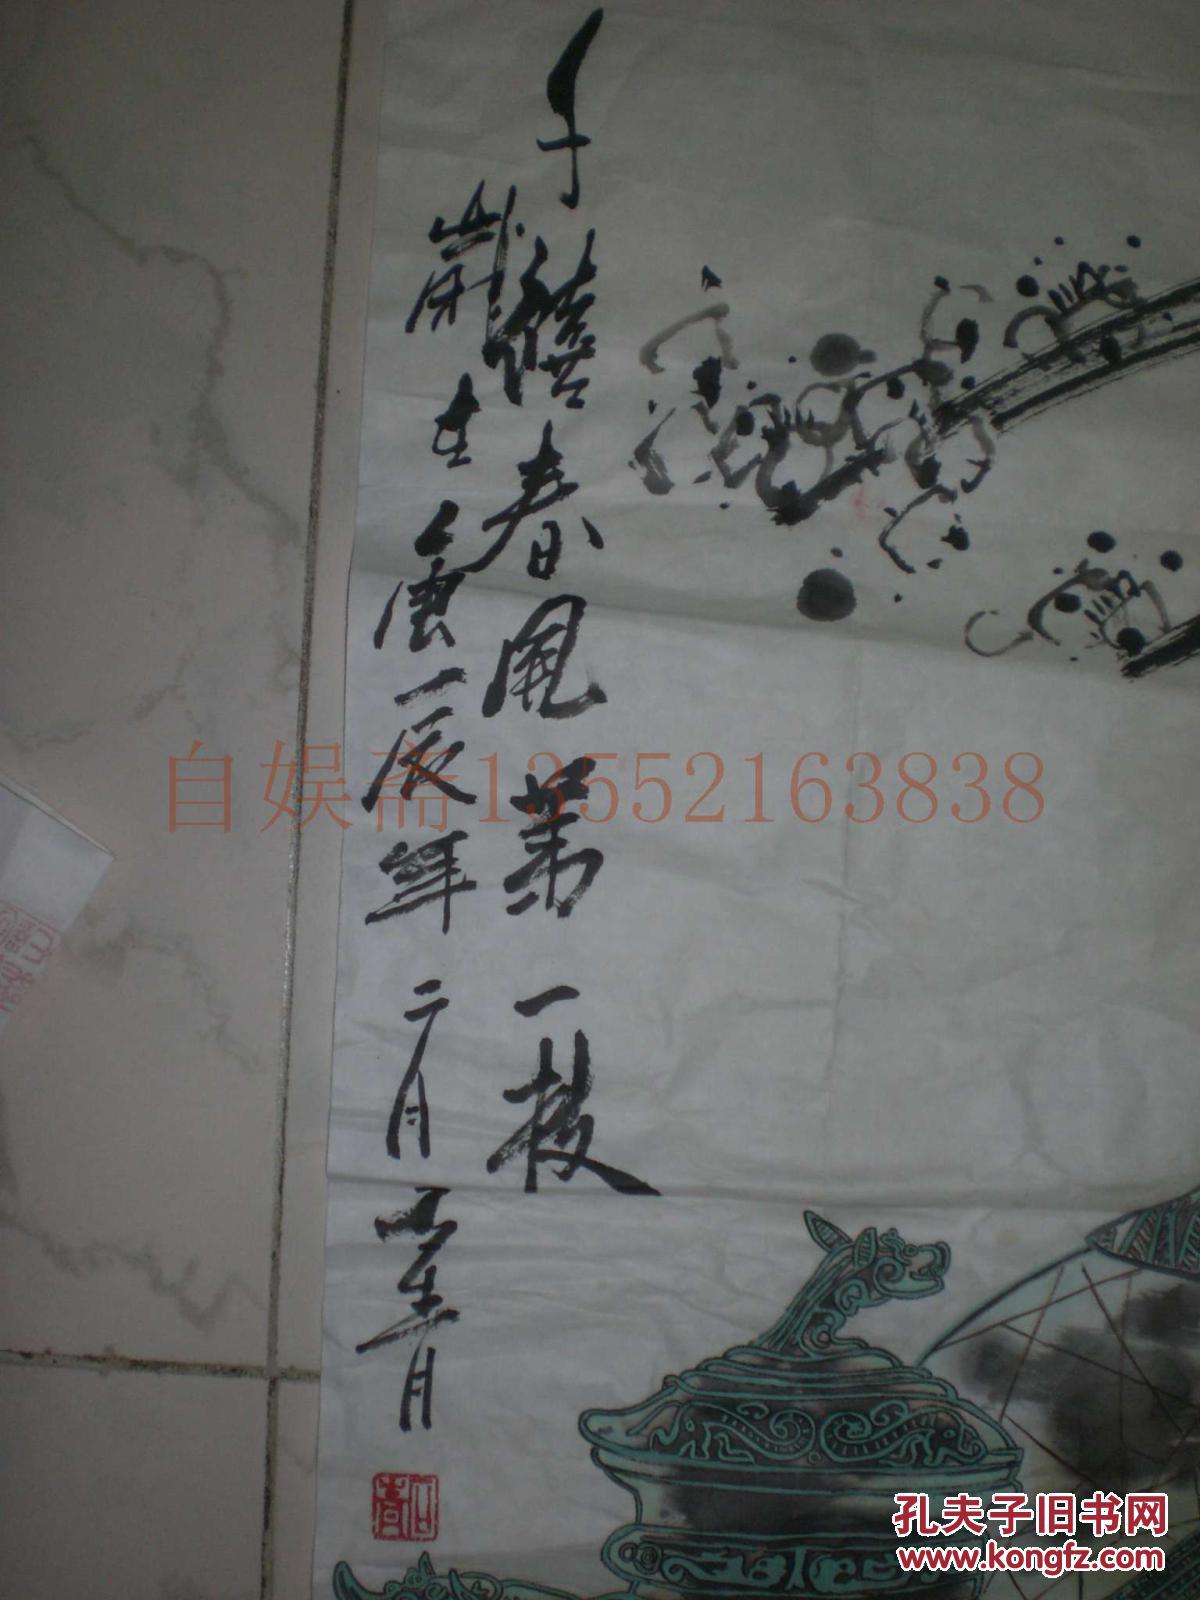 千禧春风第一枝
歲在庚辰年二月石青
自娱斋13552163838
孔夫子旧书网
www.kongfz.com